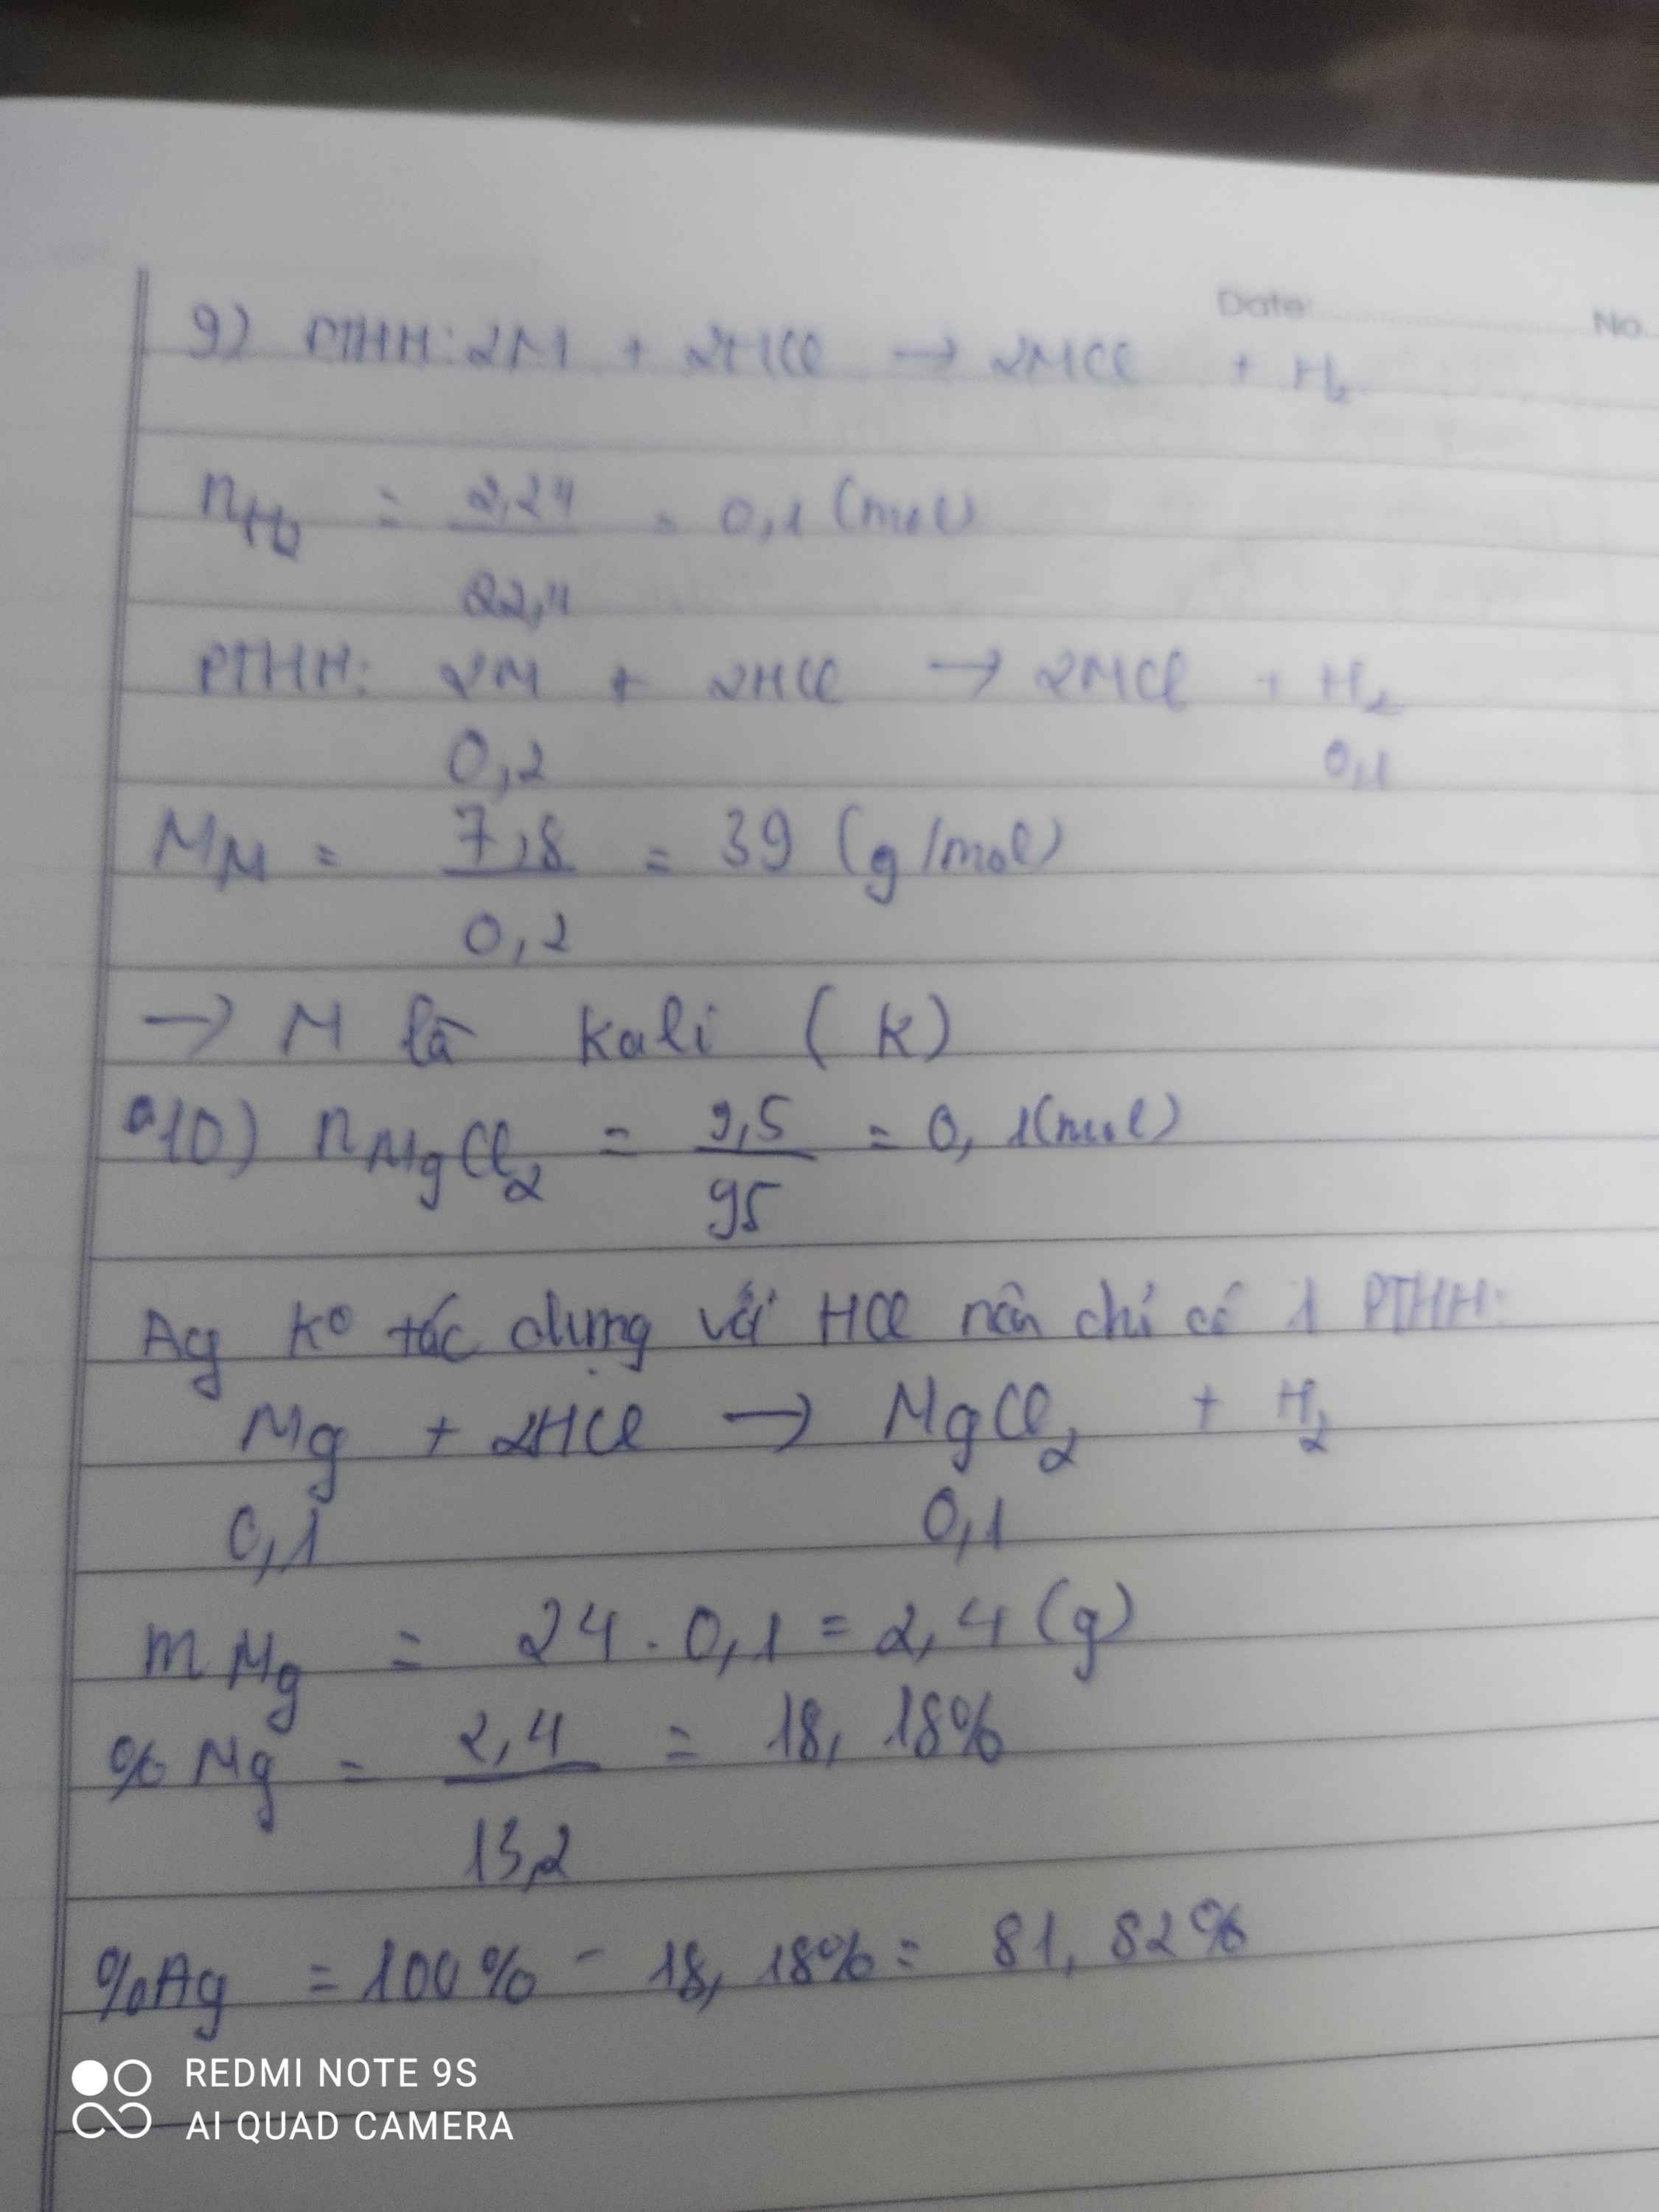 Date:
No
9) PTHH: 2M + 2HCl → 2MCl + H₂
nH₂ = 2,24 / 22,4 = 0,1 (mol)
PTHH: 2M + 2HCl → 2MCl + H₂
0,2 0,1
MM = 7,8 / 0,2 = 39 (g/mol)
→ M là Kali (K)
10) nMgCl₂ = 9,5 / 95 = 0,1(mol)
Ag K° tác dụng với HCl nên chỉ có 1 PTHH:
Mg + 2HCl → MgCl₂ + H₂
0,1 0,1
mMg = 24 . 0,1 = 2,4 (g)
% Mg = 2,4 / 13,2 = 18,18%
%Ag = 100% - 18,18% = 81,82%
REDMI NOTE 9S
AI QUAD CAMERA